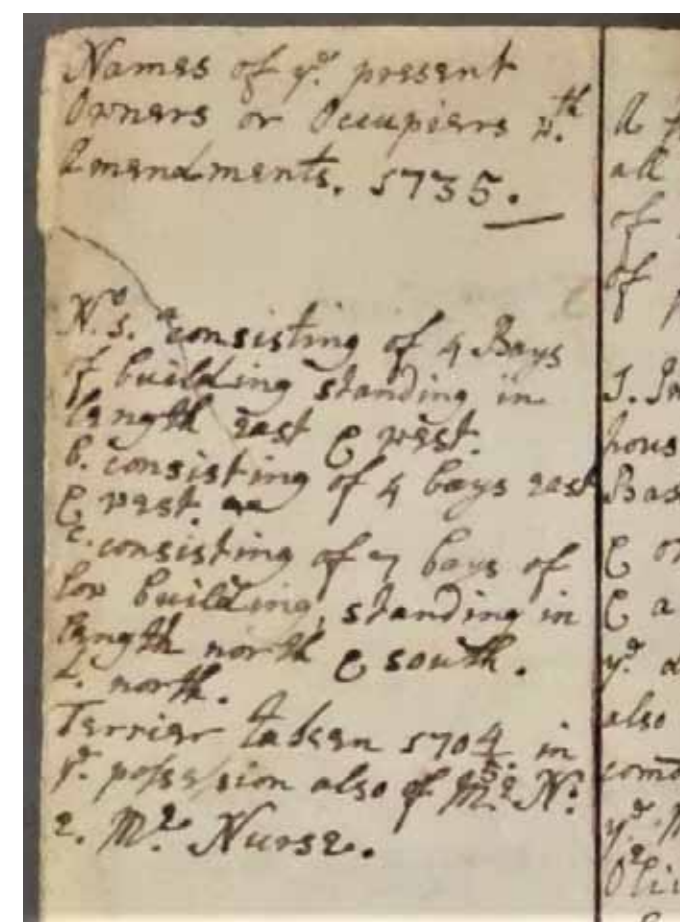 Names of yᵉ present
Owners or Occupiers wth
Amendments. 1735.
No. 1. a consisting of 4 Bays
of building standing in
length east & west.
b. consisting of 4 bays east
& west.
c. consisting of 7 bays of
low building, standing in
length north & south.
d. north.
Terrier taken 1704/5. in
yᵉ possession also of Mr N:
2. Mr Nurse.
A
all
of
of
1.
hous
Bas
& or
& a
yᵉ
also
yᵉ